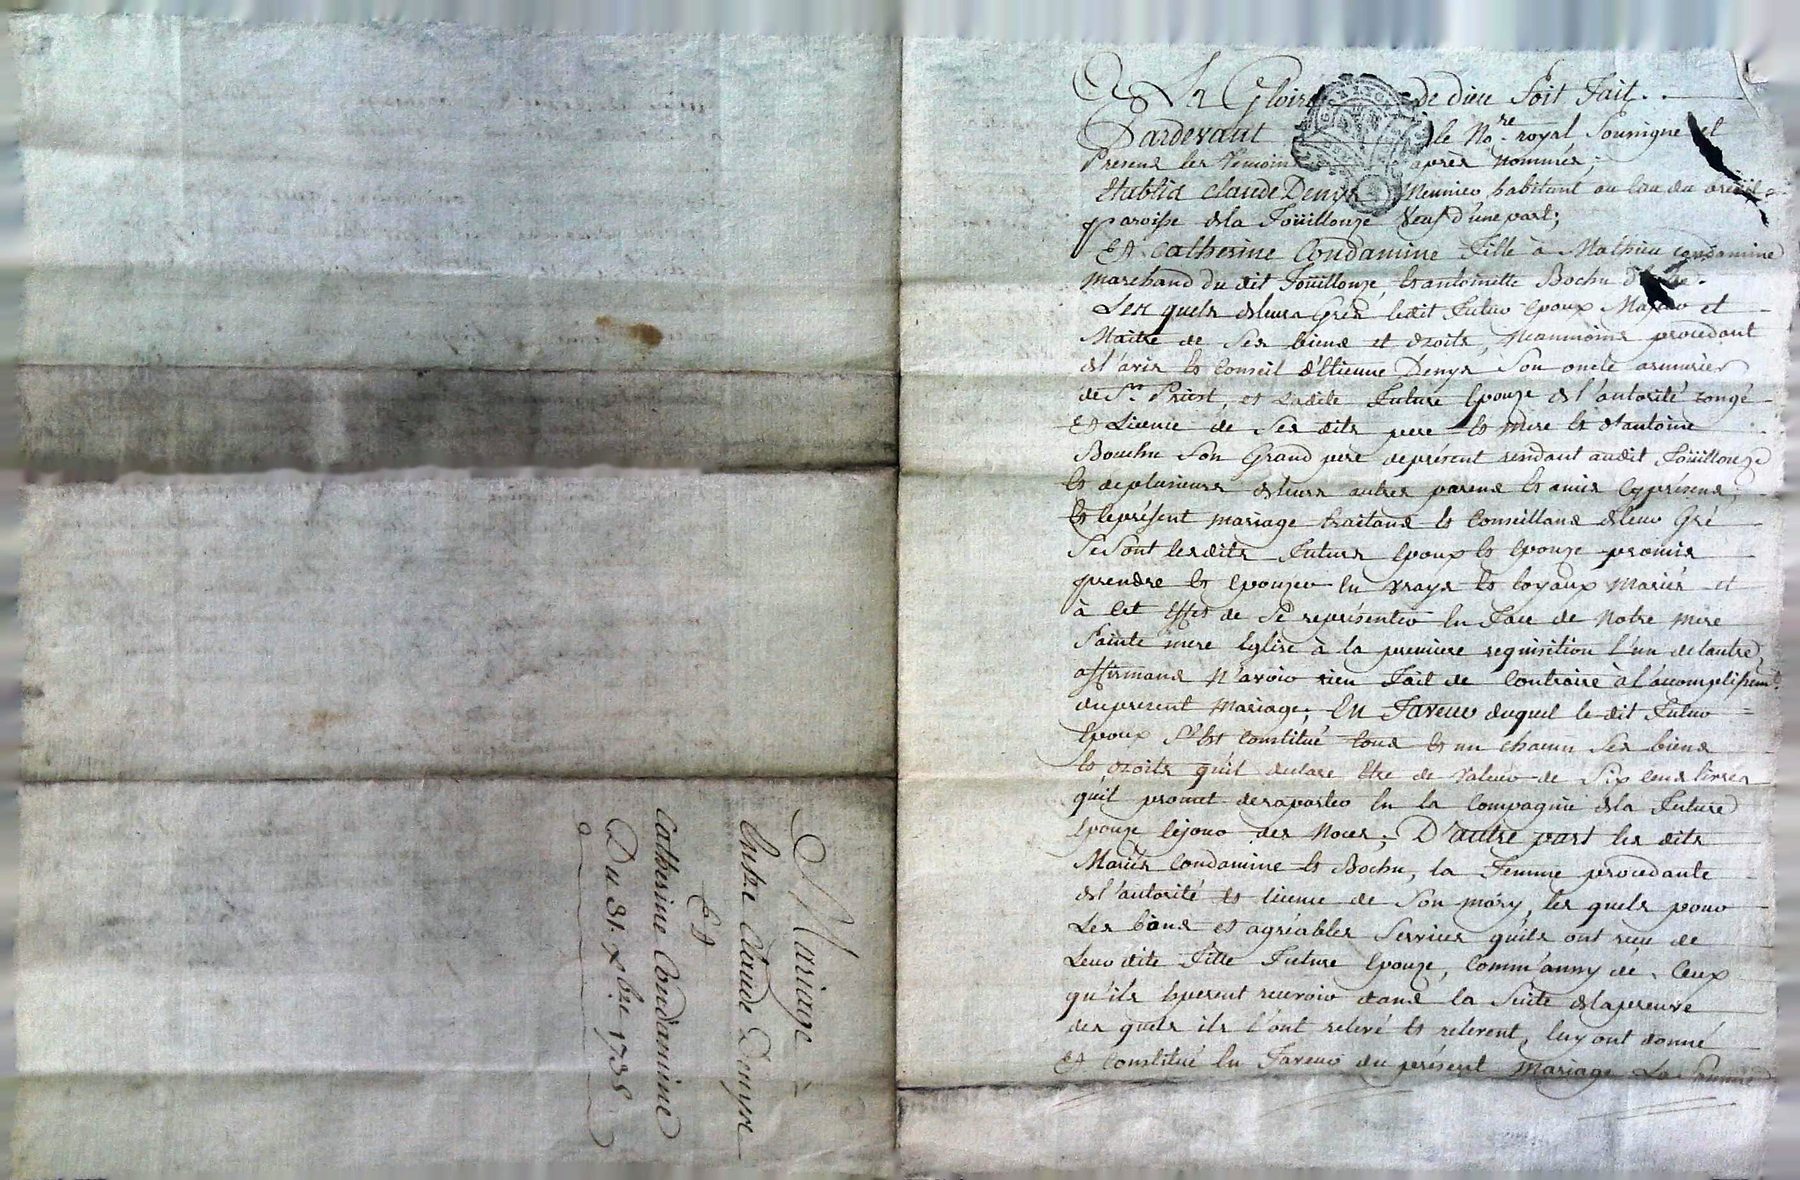 Mariage
Entre Claude Denys
Et
Catherine Condamine
Du 31. Xbre 1735
A La Gloire de dieu soit fait.
Pardevant le Nore. royal soussigné et
Present les temoins après nommés;
Etablis Claude Denys Meunier habitant au lieu du
paroisse de la Foüillouze veuf d'une part;
Et Catherine Condamine fille à Mathieu Condamine
marchand du dit Foüillouze, et antoinette Bochu
Les quels de leurs Grés ledit futur Epoux Majeur et
Maitre de ses biens et droits, Neanmoins procedant
de l'avis et Conseil d'Etienne Denys son oncle armurier
de St. Priest, et ladite future Epouze de l'autorité congé
Et Licence de ses dits pere et mere et d'antoine
Bouchu son Grand pere à présent rendant audit Foüillouze
et de plusieurs de leurs autres parens et amis cy présens;
et le présent mariage traitans et Conseillans de leur Gré
se sont lesdits futurs Epoux et Epouze promis
prendre et epouzer en vrays et loyaux Mariés et
à cet Effet de se représenter en face de Notre mere
Sainte mere Eglise à la premiere requisition l'un de l'autre
affirmans N'avoir rien fait de Contraire à l'accomplissemt.
du present Mariage; En faveur duquel le dit futur
Epoux s'est Constitué tous et un chacun ses biens
et droits quil declare Etre de valeur de six cens livres
quil promet deraporter en la Compagnie de la future
Epouze le jour des Noces; D'autre part les dits
Mariés Condamine et Bochu, la femme procedante
de l'autorité et licence de son mary, les quels pour
Les bons et agréables services quils ont reçu de
Leur dite fille future Epouze, comm'aussy de ceux
qu'ils Esperent recevoir dans la suite de la preuve
des quels ils l'ont relevé et relevent, luy ont donné
Et Constitué En faveur du présent Mariage La somme